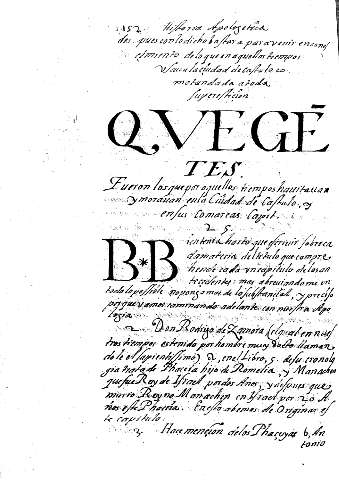 152 Historia Apologetica
dos, pues con lo dicho basta para venir en cono
cimiento de lo que en aquellos tiempos
Vsaua la ciudad de Castulo co
mo tan dada a toda
supersticion
QVE GĒ
TES.
Fueron los que por aquellos tiempos hauitauan
y morauan en la Ciudad de Castulo, y
en sus Comarcas. Capit.
25.
Bien tenia harto que escriuir sobre ca
da materia del titulo que compre
hende cada vn capitulo de los an
tecedentes: mas abreuiandome en
todo lo posible no pongo mas de lo substancial, y preciso
porque vamos caminando adelante con nuestra Apo
logia.
2 Don Rodrigo de Zamora (el qual en nues
tros tiempos es tenido por hombre muy docto llaman
dole el sapientissimo) 2, en el Libro, 5. de su cronolo
gia trata de Phaceia hijo de Romelia, y Manachen
que fue Rey de Israel por dos Años, y despues que
murio Reyno Manachen en Israel por 20 A
ños este Phaceia. En esto abemos de Originar es
te capitulo.
3 Hace mencion de los Phaceyas b, An
tonio